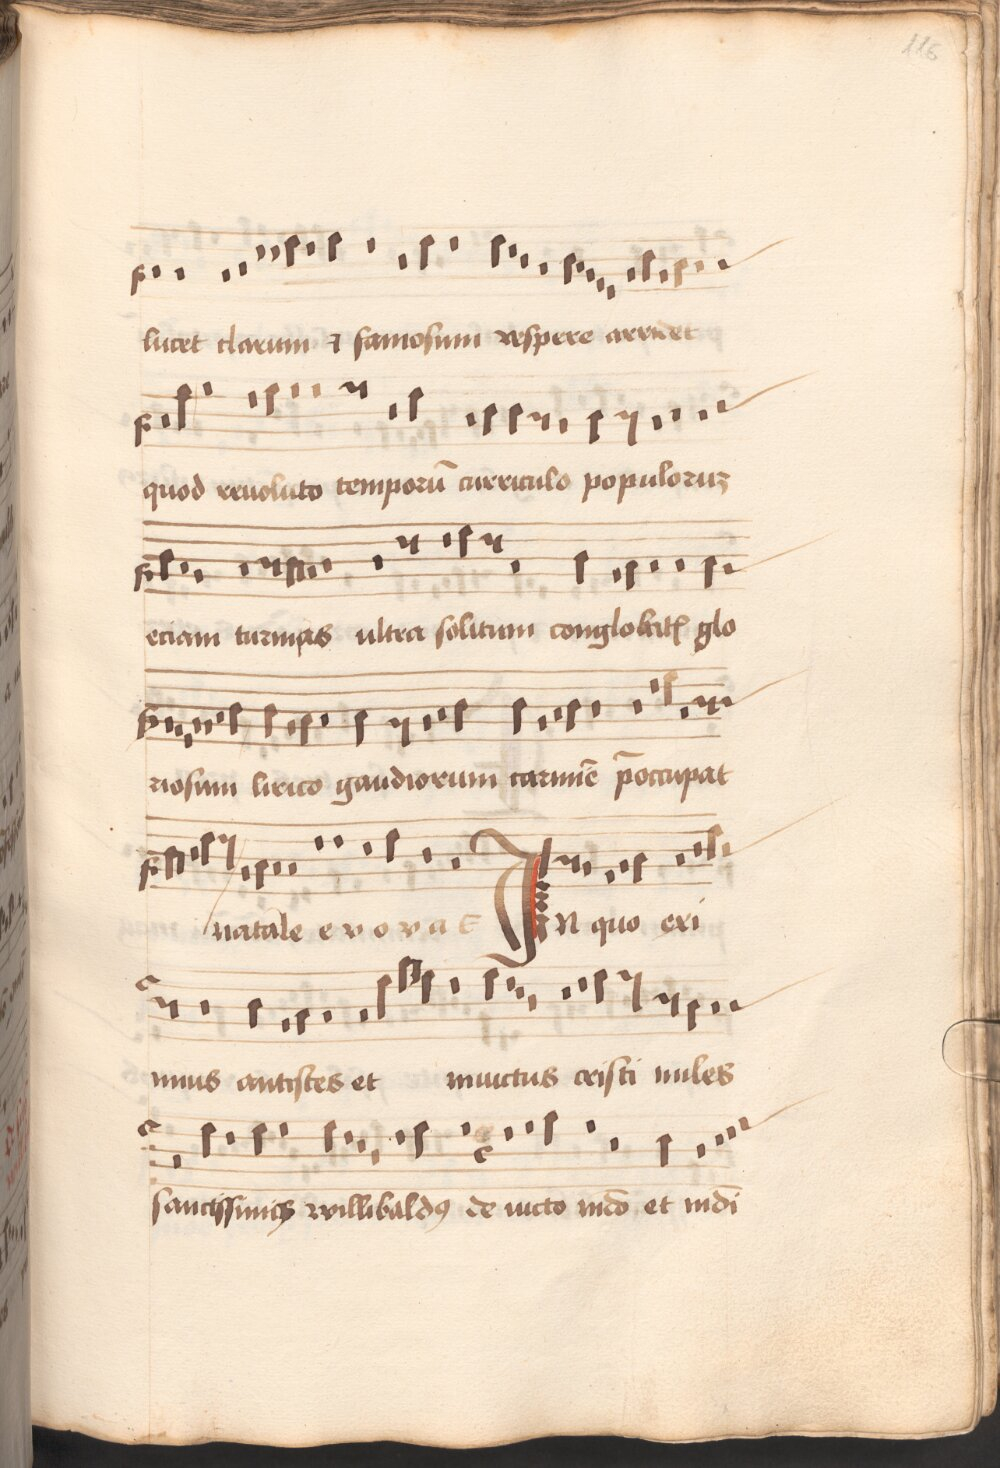 116
lucet clarum ⁊ famosum vespere arridet
quod reuoluto temporū curriculo populorum
eciam turmas ultra solitum conglobatꝭ glo
riosum lirico gaudiorum carmīe p̄occupat
natale e v o v a e In quo exi
mius antistes et inuictus cristi miles
sanctissimꝰ willibaldꝰ de uicto mūdo et mūdi